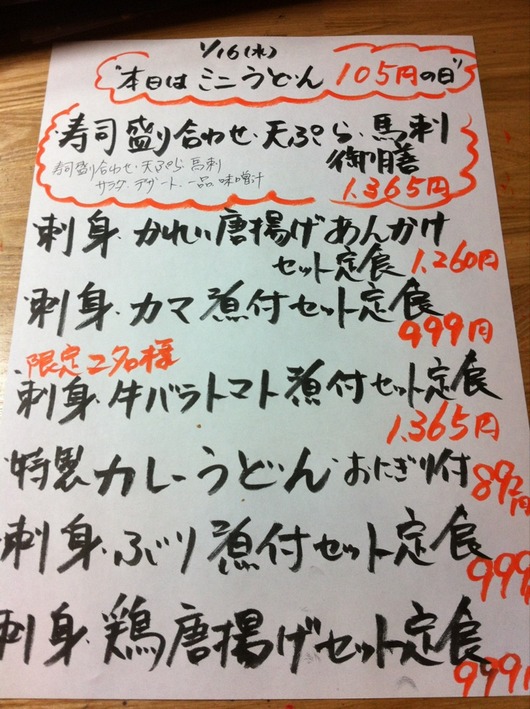 1/16(水)
"本日はミニうどん 105円の日"
寿司盛り合わせ・天ぷら・馬刺
御膳
寿司盛り合わせ・天ぷら・馬刺
サラダ・デザート・一品・味噌汁
1.365円
刺身・かれい唐揚げあんかけ
セット定食 1.260円
刺身・カマ煮付セット定食
999円
限定2名様
刺身・牛バラトマト煮付セット定食
1.365円
特製カレーうどん・おにぎり付 892円
刺身・ぶり煮付セット定食
999
刺身・鶏唐揚げセット定食
999円